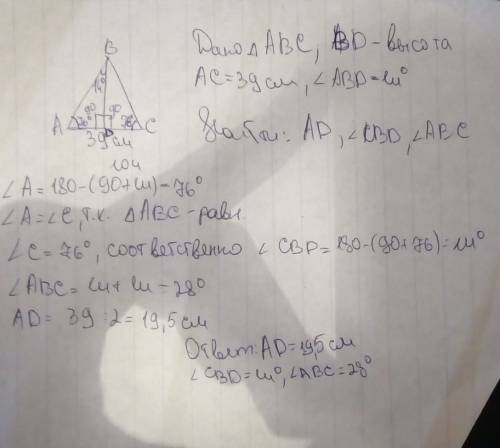 B
14°
90 90
A 76° 76° C
D
39 см
Дано △ ABC, BD - высота
AC = 39 см, ∠ABD = 14°
Найти: AD, ∠CBD, ∠ABC
∠A = 180 - (90 + 14) = 76°
∠A = ∠C, т.к. △ABC - равн.
∠C = 76°, соответственно ∠CBD = 180 - (90 + 76) = 14°
∠ABC = 14 + 14 = 28°
AD = 39 : 2 = 19,5 см
Ответ: AD = 19,5 см
∠CBD = 14°, ∠ABC = 28°